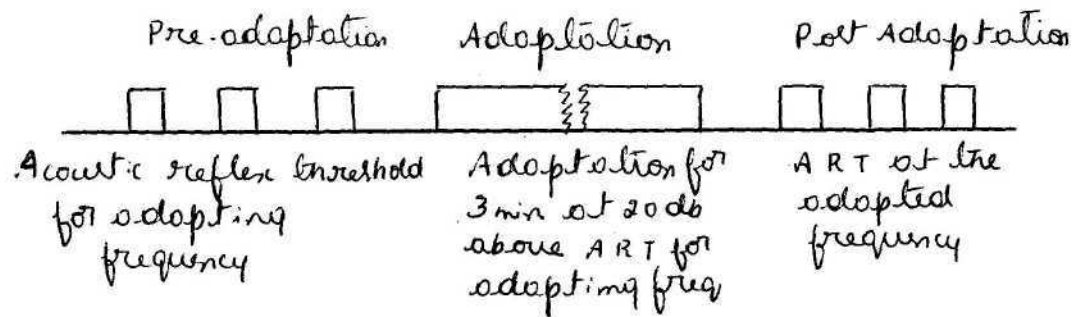 Pre-adaptation
Adaptation
Post Adaptation
Acoustic reflex threshold
for adapting
frequency
Adaptation for
3 min at 20 db
above ART for
adapting freq
ART at the
adapted
frequency